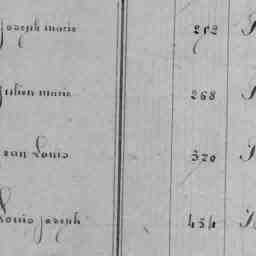 Joseph marie 252
Julien marie 268
Jean Louis 320
Louis joseph 454